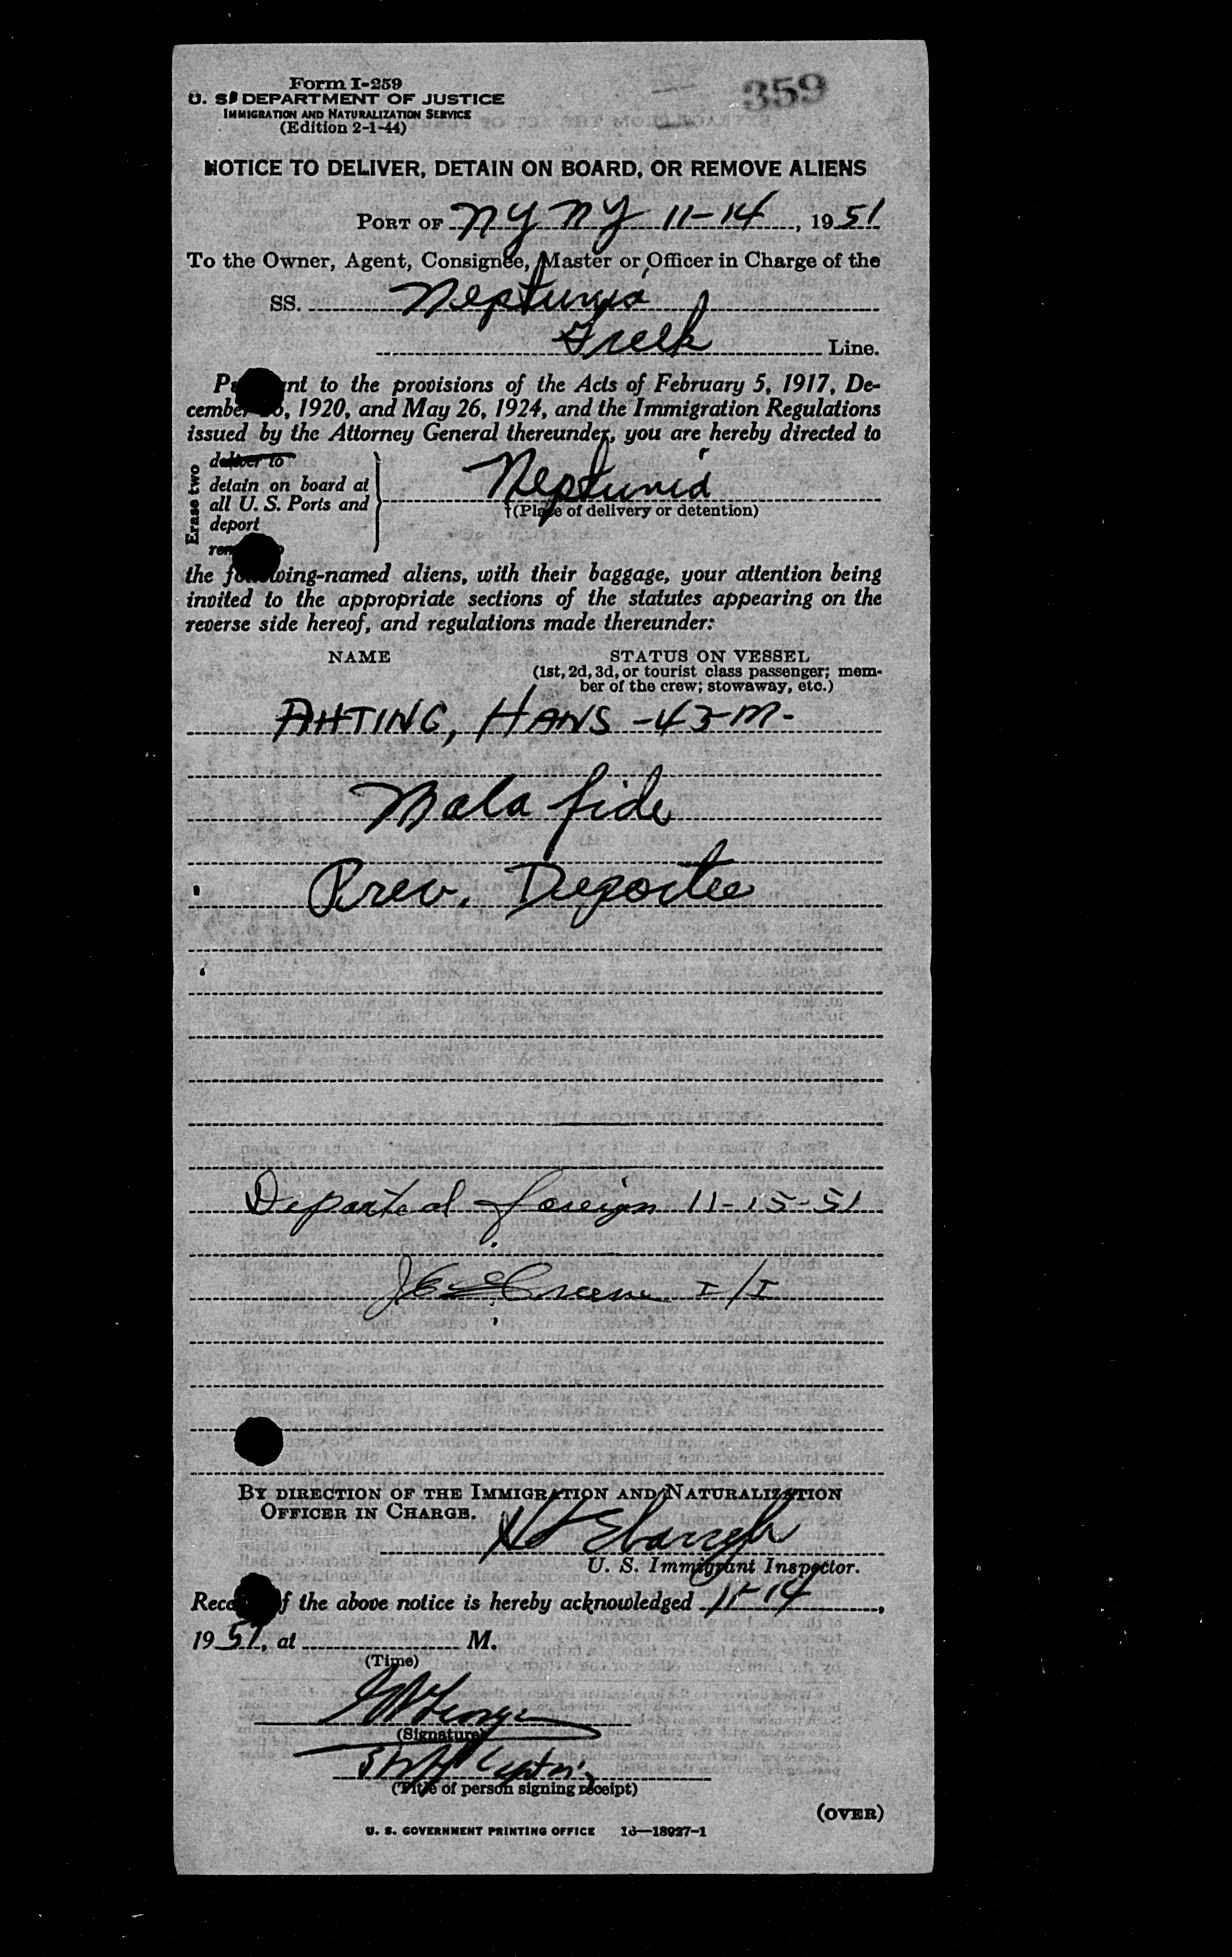 Form I-259
359
U. S. DEPARTMENT OF JUSTICE
IMMIGRATION AND NATURALIZATION SERVICE
(Edition 2-1-44)
NOTICE TO DELIVER, DETAIN ON BOARD, OR REMOVE ALIENS
PORT OF NY NY 11-14, 1951
To the Owner, Agent, Consignee, Master or Officer in Charge of the
SS. Neptunia
Greek Line.
to the provisions of the Acts of February 5, 1917, De-
cember 1920, and May 26, 1924, and the Immigration Regulations
issued by the Attorney General thereunder, you are hereby directed to
Erase two
deliver to
detain on board at
all U. S. Ports and
deport
Neptunia
†(Place of delivery or detention)
the following-named aliens, with their baggage, your attention being
invited to the appropriate sections of the statutes appearing on the
reverse side hereof, and regulations made thereunder:
NAME STATUS ON VESSEL
(1st, 2d, 3d, or tourist class passenger; mem-
ber of the crew; stowaway, etc.)
AHTING, HANS -43-M-
Mala fide
Prev. Deportee
Departed foreign 11-15-51
Greene I/I
BY DIRECTION OF THE IMMIGRATION AND NATURALIZATION
OFFICER IN CHARGE.
U. S. Immigrant Inspector.
of the above notice is hereby acknowledged 11-14,
1951, at M.
(Time)
(Signature)
(Title of person signing receipt)
(OVER)
U. S. GOVERNMENT PRINTING OFFICE 16—18927-1